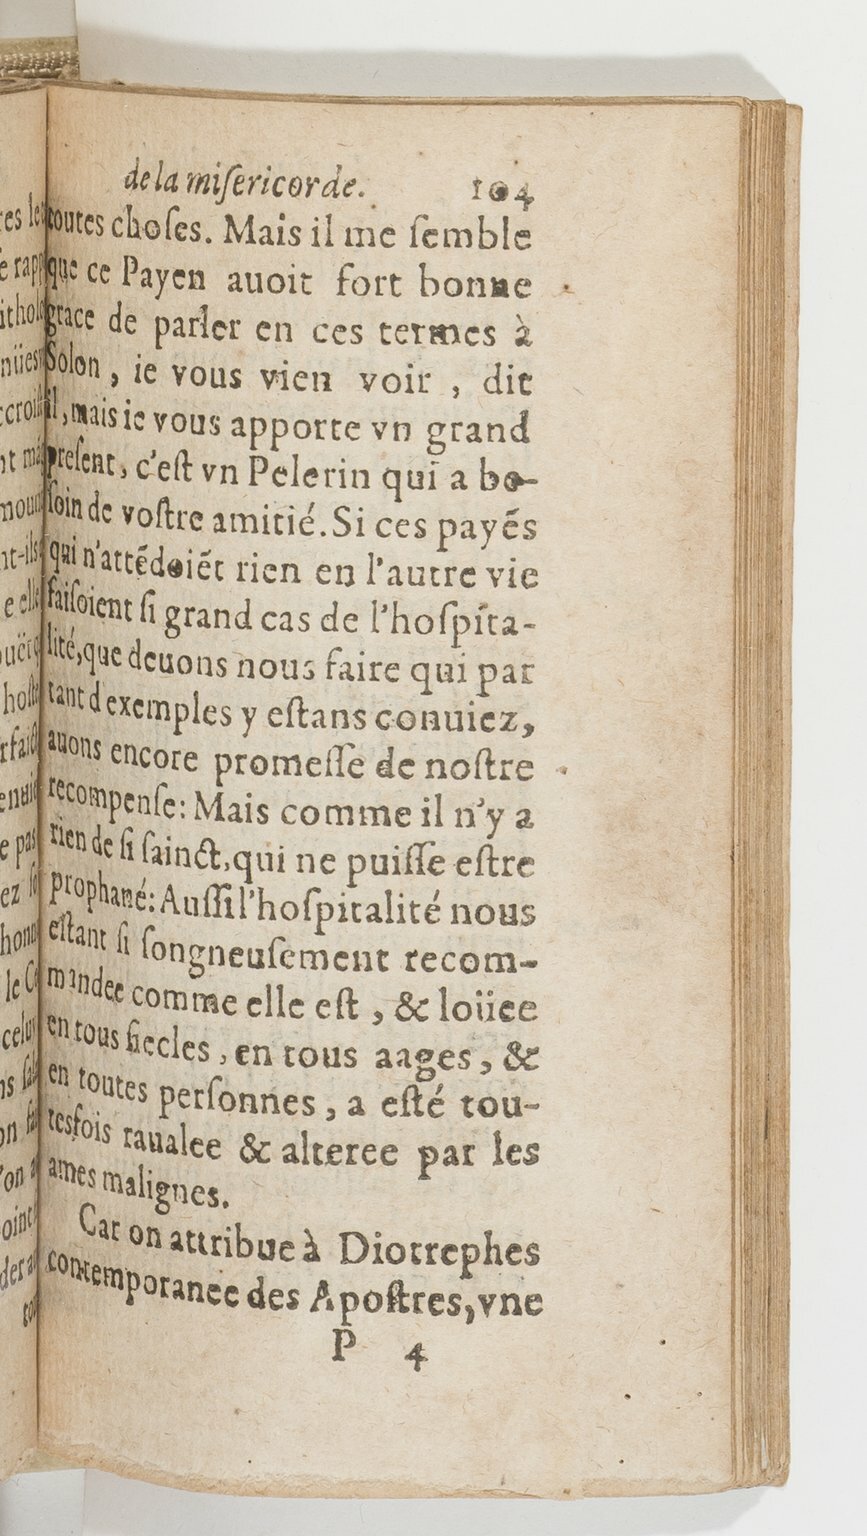 de la miſericorde. 104
toutes choſes. Mais il me ſemble
que ce Payen auoit fort bonne
grace de parler en ces termes à
Solon, ie vous vien voir, dit
il, mais ie vous apporte vn grand
preſent, c'eſt vn Pelerin qui a be-
ſoin de voſtre amitié. Si ces payẽs
qui n'attẽdoiẽt rien en l'autre vie
faiſoient ſi grand cas de l'hoſpita-
lité, que deuons nous faire qui par
tant d'exemples y eſtans conuiez,
auons encore promeſſe de noſtre
recompenſe: Mais comme il n'y a
rien de ſi ſainct, qui ne puiſſe eſtre
prophané: Auſſi l'hoſpitalité nous
eſtant ſi ſongneuſement recom-
mandee comme elle eſt, & loüee
en tous ſiecles, en tous aages, &
en toutes perſonnes, a eſté tou-
tesfois raualee & alteree par les
ames malignes.
Car on attribue à Diotrephes
contemporanee des Apoſtres, vne
P 4